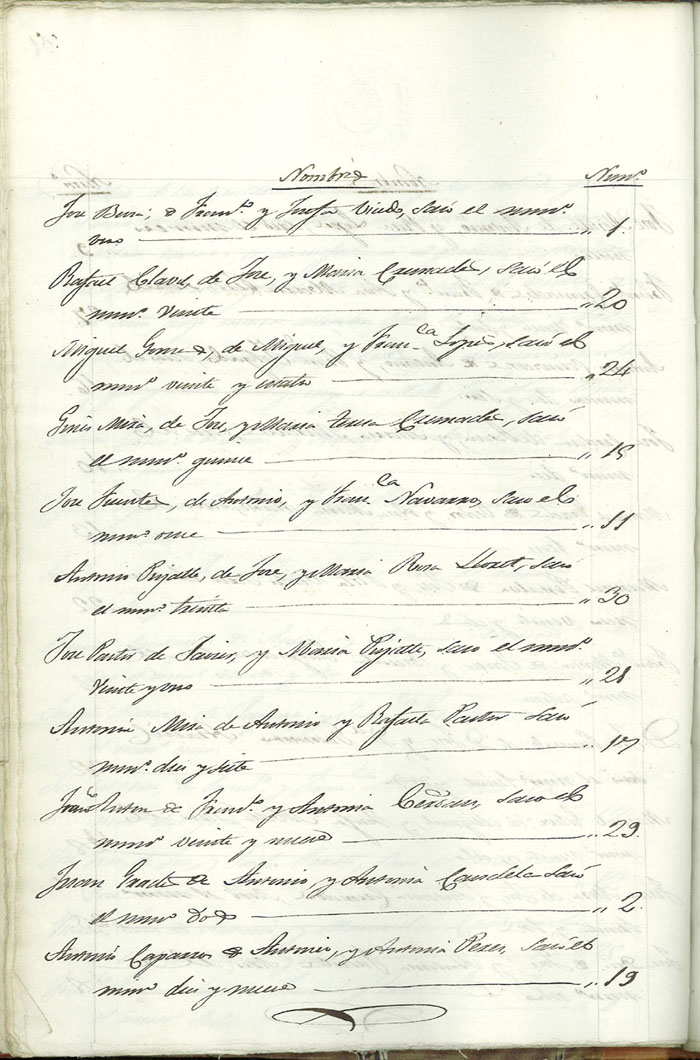 Nombres Num.º
Jose de Fran.co y Josefa saco el num.º
uno " 1.
Rafael de Jose, y Maria saco el
num.º veinte " 20
Miguel de Miguel, y Fran.ca Lopes, saco el
num.º veinte y cuatro " 24
Gines Mira, de Jose, y Maria teresa saco
el num.º quince " 15
Jose Fuentes, de Antonio, y Fran.ca Navarro, saco el
num.º once " 11
Antonio de Jose, y Maria Rosa Lloret, saco
el num.º treinta " 30
Jose Pastor de y Maria saco el num.º
veinte y uno " 21
Antonio Mira de Antonio y Rafaela Pastor saco
num.º dies y siete " 17
Anton de Fran.co y Antonia saco el
num.º veinte y nueve " 29.
Juan de Antonio y Antonia Candela saco
el num.º dos " 2.
Antonio Caparros de Antonio, y Antonia Peres, saco el
num.º dies y nueve " 19